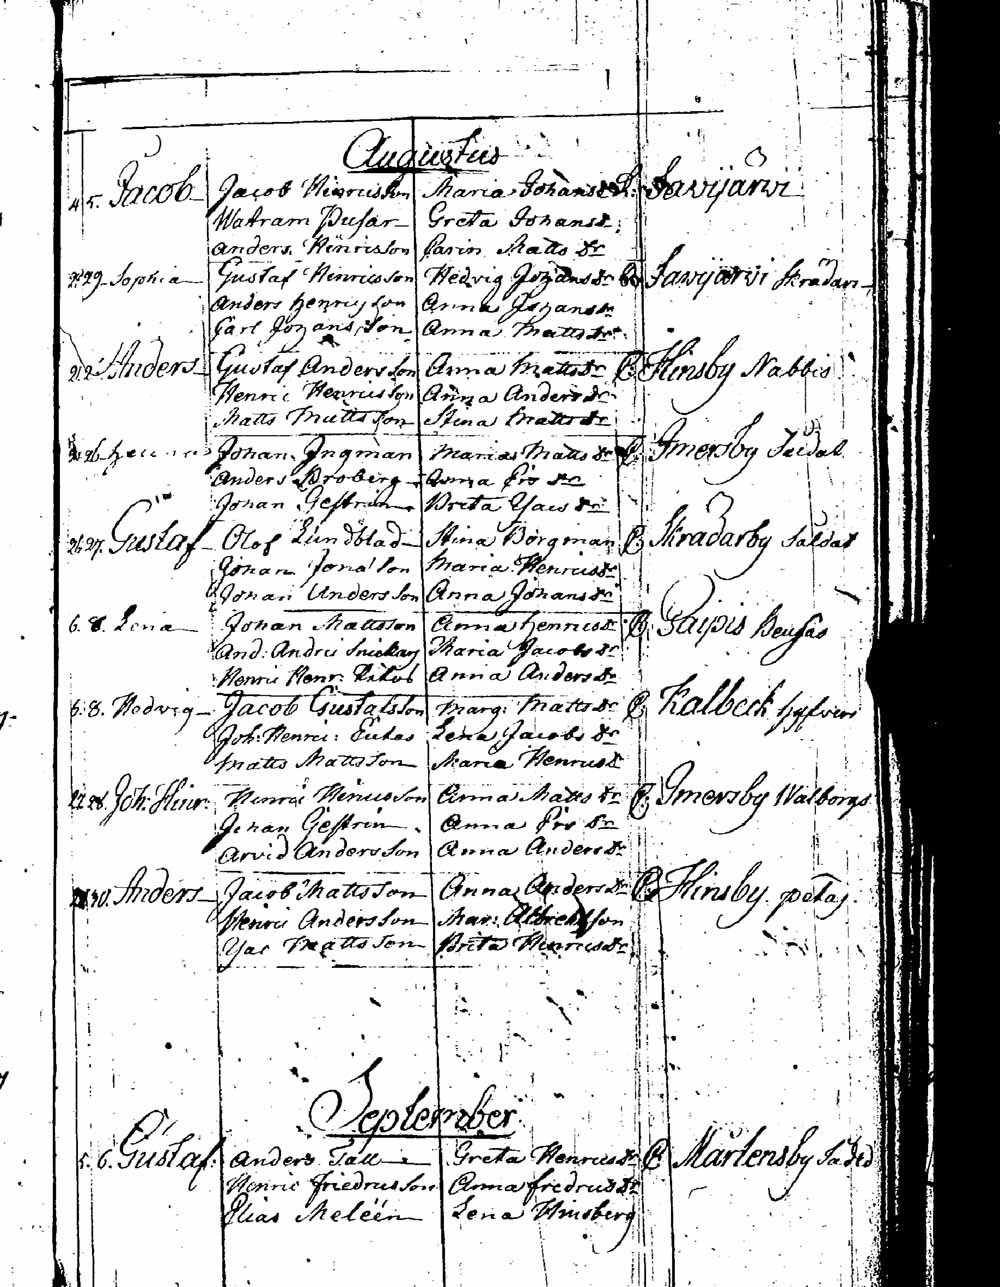 Augustus
4. 5. Jacob Jacob Hinricsson Maria Johansdr Savijärvi
Watram Pusar Greta Johansdr
Anders Hinricsson Carin Matts dr
29 Sophia Gustaf Henricsson Hedvig Johans dr C. Savijärvi Skrädari
Anders Henricsson Anna Johansdr
Carl Johansson Anna Mattsdr
Anders Gustaf Andersson Anna Mattsdr C. Hinsby Nabbis
Henric Henricsson Anna Andersdr
Matts Mattsson Stina Mattsdr
26 Johan Ingman Maria Matts dr C. Imersby Saldat
Anders Broberg Anna Ers dr
Johan Gestrin Brita Ysacs dr
26 27. Gustaf Olof Lundblad Stina Borgman C. Skradarby Saldat
Johan Jona Son Maria Henricsdr
Johan Andersson Anna Johansdr
6. 8. Lena Johan Mattsson Anna Henricsdr C. Paipis Beusas
And: Andrs Snickars Maria Jacobs dr
Henric Henr: Anna Andersdr
6. 8. Hedvig Jacob Gustafsson Marg: Matts dr C. Kalbeck
Joh: Henric: Lena Jacobs dr
Matts Mattsson Maria Henricsdr
22 28. Joh: Hinr: Henric Henricsson Anna Matts dr C. Imersby Walborgs
Johan Gestrin Anna Ers dr
Arvid Andersson Anna Andersdr
30. Anders Jacob Mattsson Anna Andersdr C. Hinsby petas
Henric Andersson Mar: Albrechtson
Ysac Mattsson Brita Henricsdr
September
5. 6. Gustaf. Anders Tall Greta Henricsdr C Mårtensby
Henric Friedricsson Anna Fredricsdr
Elias Meléen Lena Hinsberg